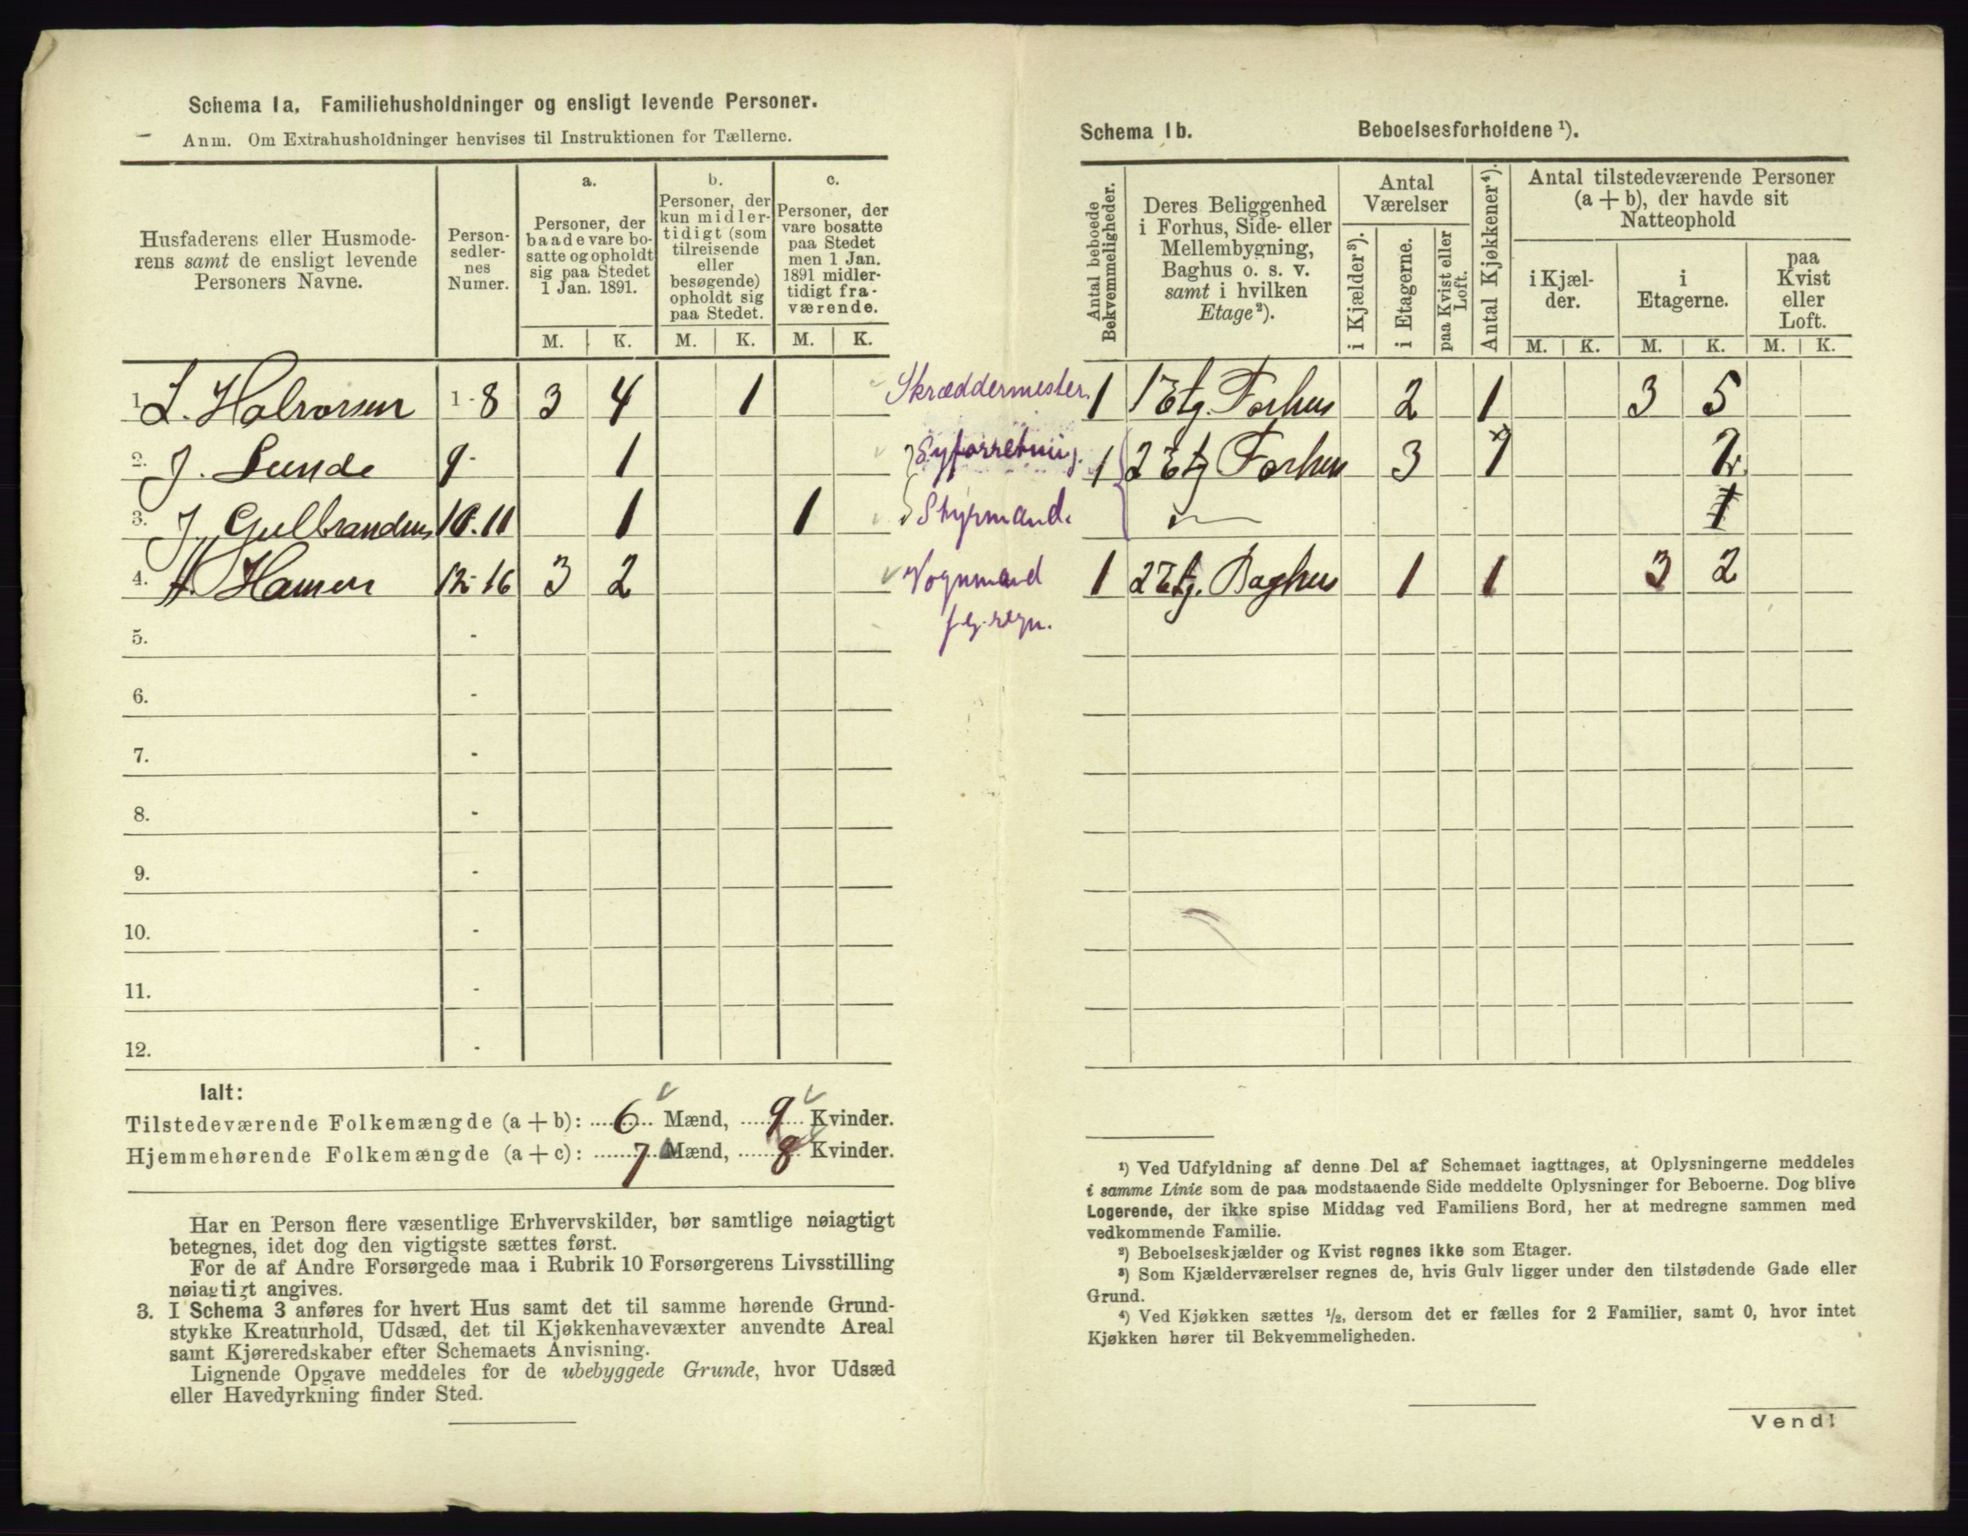 Schema 1a. Familiehusholdninger og ensligt levende Personer.
Anm. Om Extrahusholdninger henvises til Instruktionen for Tællerne.
Husfaderens eller Husmode-
rens samt de ensligt levende
Personers Navne.
Person-
sedler-
nes
Numer.
a.
Personer, der
baade vare bo-
satte og opholdt
sig paa Stedet
1 Jan. 1891.
b.
Personer, der
kun midler-
tidigt (som
tilreisende
eller
besøgende)
opholdt sig
paa Stedet.
c.
Personer, der
vare bosatte
paa Stedet
men 1 Jan.
1891 midler-
tidigt fra-
værende.
M. K. M. K. M. K.
1. L. Halvorsen 1-8 3 4 1
2. J. Lunde 9- 1
3. J. Gulbrandsen 10-11 1 1
4. A. Hansen 12-16 3 2
5. -
6. -
7. -
8. -
9. -
10. -
11. -
12. -
Ialt:
Tilstedeværende Folkemængde (a + b): 6 Mænd, 9 Kvinder.
Hjemmehørende Folkemængde (a + c): 7 Mænd, 8 Kvinder.
Har en Person flere væsentlige Erhvervskilder, bør samtlige nøiagtigt
betegnes, idet dog den vigtigste sættes først.
For de af Andre Forsørgede maa i Rubrik 10 Forsørgerens Livsstilling
nøiagtigt angives.
3. I Schema 3 anføres for hvert Hus samt det til samme hørende Grund-
stykke Kreaturhold, Udsæd, det til Kjøkkenhavevæxter anvendte Areal
samt Kjøreredskaber efter Schemaets Anvisning.
Lignende Opgave meddeles for de ubebyggede Grunde, hvor Udsæd
eller Havedyrkning finder Sted.
Skræddermester.
Syforretning.
Styrmand.
Vognmand
f. eg. regn.
Schema 1b. Beboelsesforholdene ¹).
Antal beboede
Bekvemmeligheder.
Deres Beliggenhed
i Forhus, Side- eller
Mellembygning,
Baghus o. s. v.
samt i hvilken
Etage ²).
Antal
Værelser
i Kjælder ³).
i Etagerne.
paa Kvist eller
Loft.
Antal Kjøkkener ⁴).
Antal tilstedeværende Personer
(a + b), der havde sit
Natteophold
i Kjæl-
der.
i
Etagerne.
paa
Kvist
eller
Loft.
M. K. M. K. M. K.
1 1 Etg. Forhus 2 1 3 5
1 2 Etg Forhus 3 1 2
1
1 2 Etg. Baghus 1 1 3 2
¹) Ved Udfyldning af denne Del af Schemaet iagttages, at Oplysningerne meddeles
i samme Linie som de paa modstaaende Side meddelte Oplysninger for Beboerne. Dog blive
Logerende, der ikke spise Middag ved Familiens Bord, her at medregne sammen med
vedkommende Familie.
²) Beboelseskjælder og Kvist regnes ikke som Etager.
³) Som Kjælderværelser regnes de, hvis Gulv ligger under den tilstødende Gade eller
Grund.
⁴) Ved Kjøkken sættes ½, dersom det er fælles for 2 Familier, samt 0, hvor intet
Kjøkken hører til Bekvemmeligheden.
Vend!